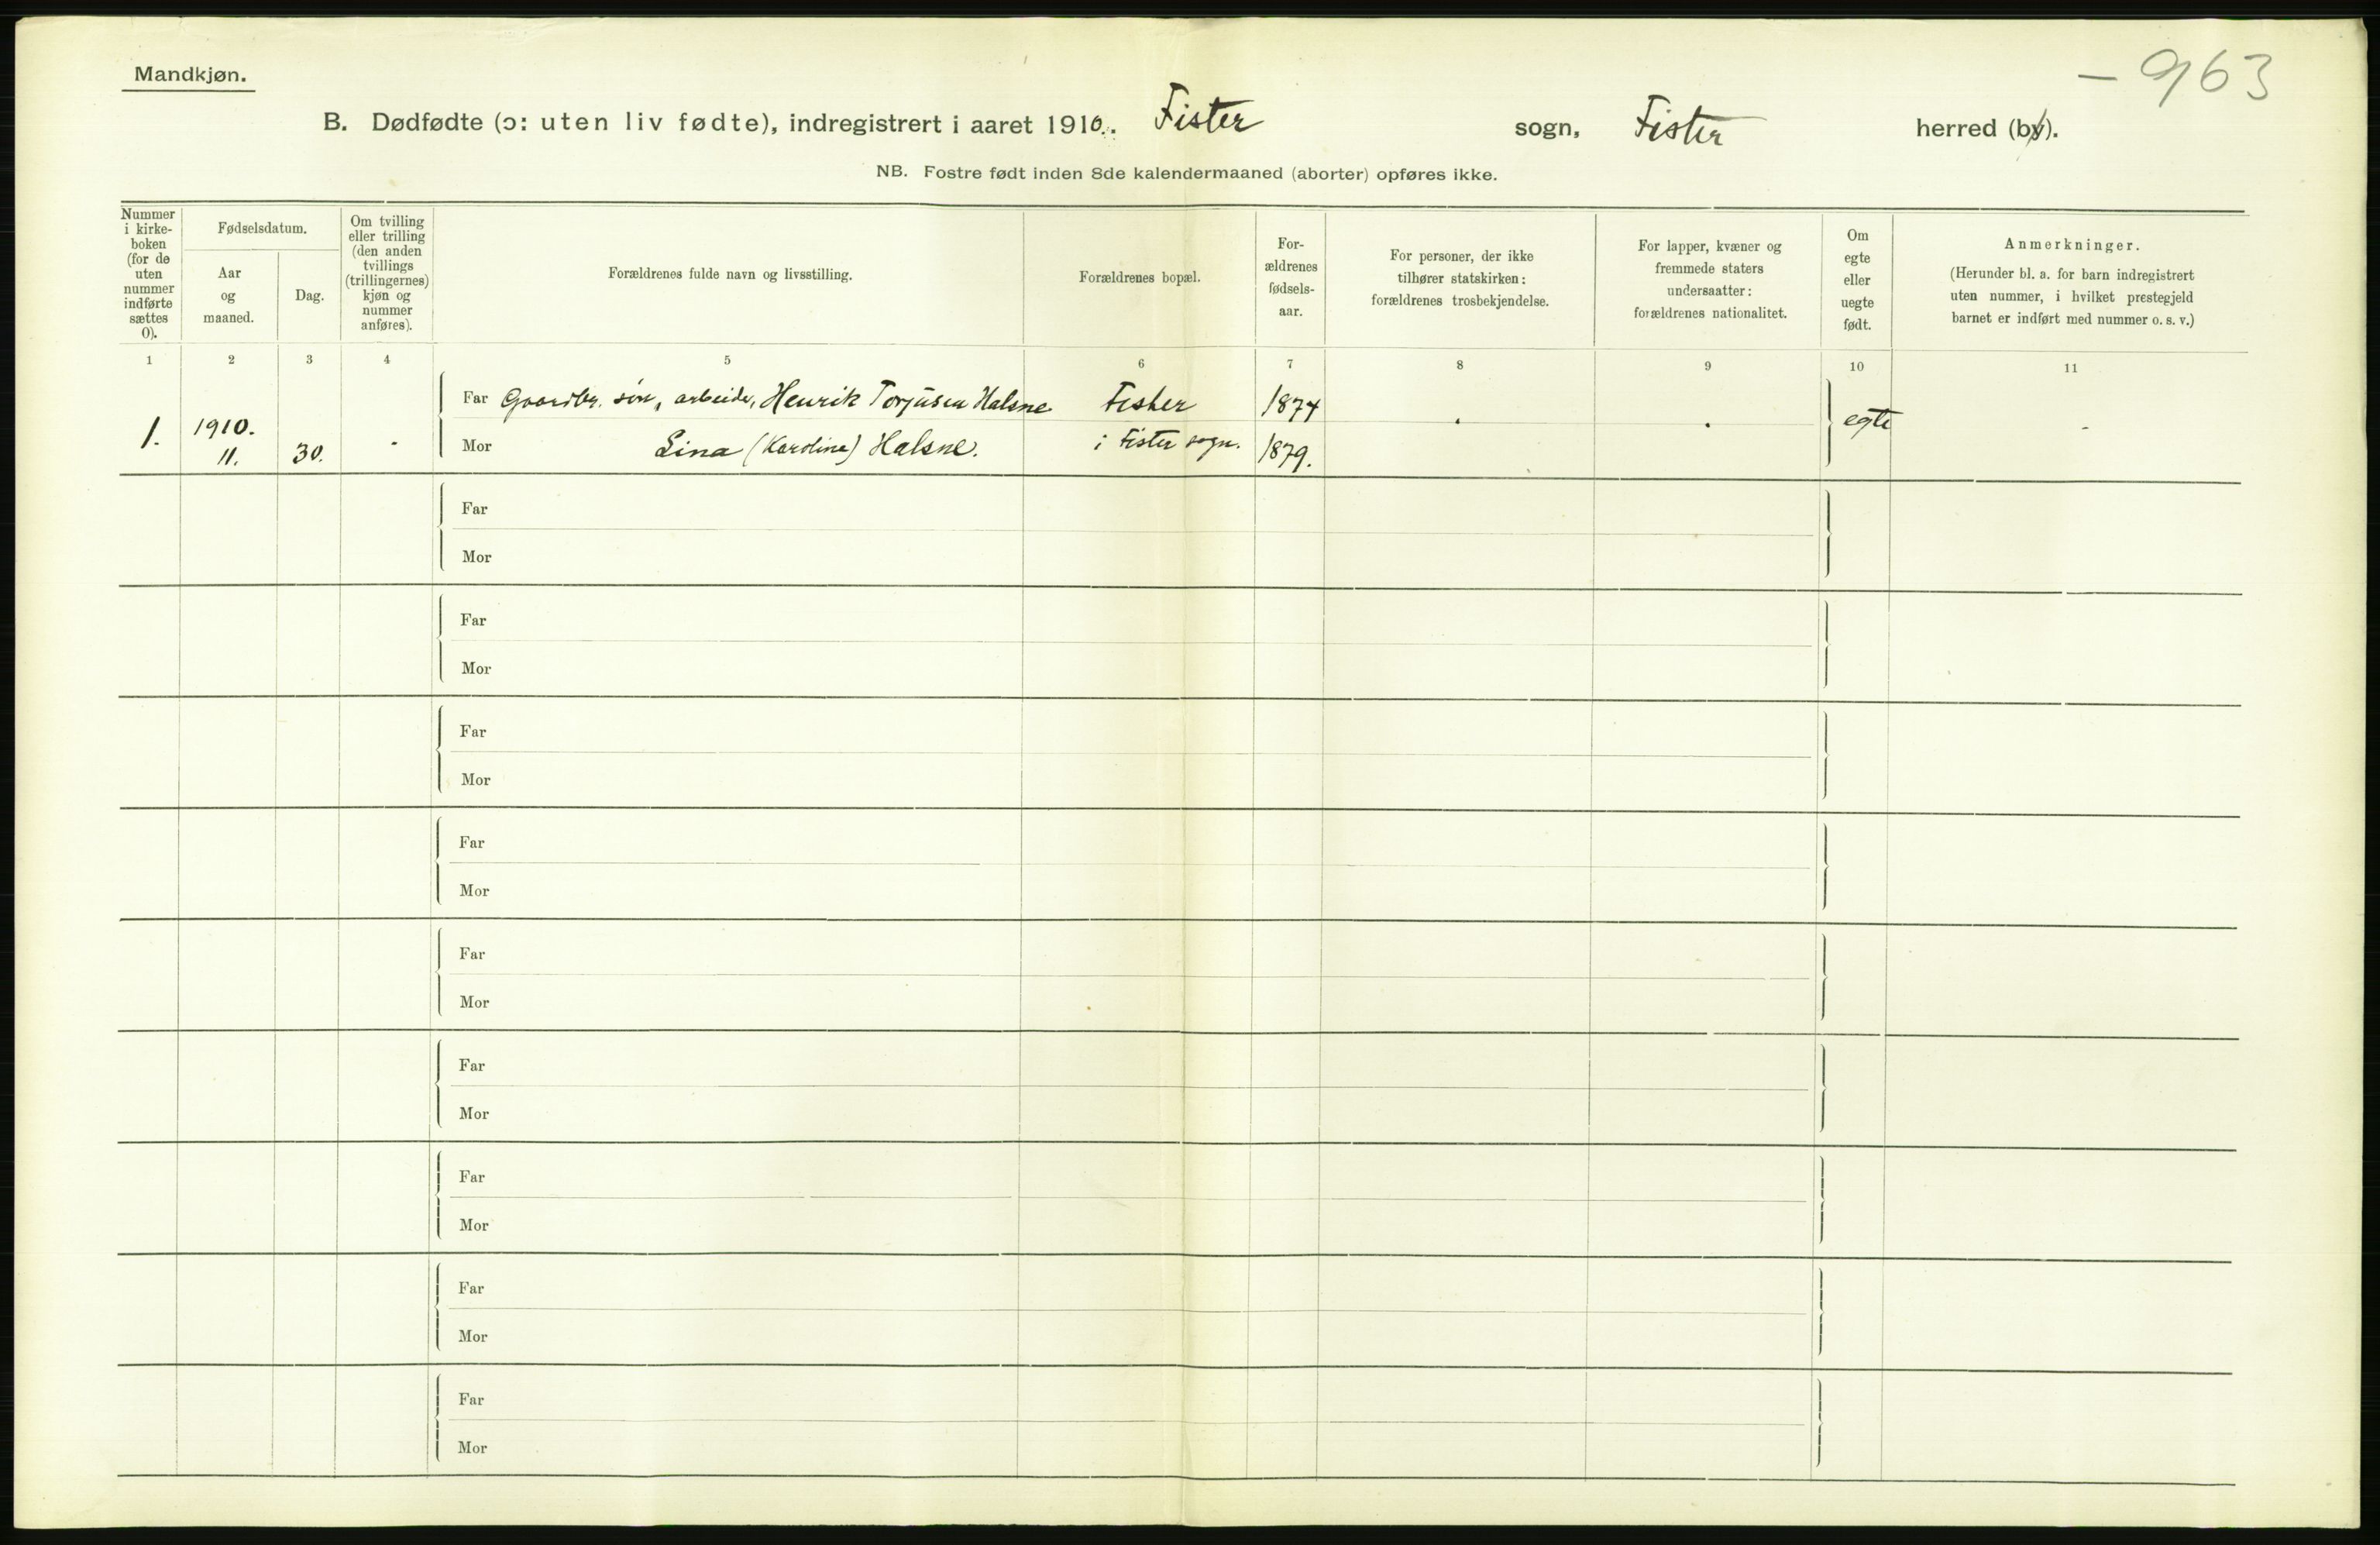 Mandkjøn.
- 963
B. Dødfødte (ɔ: uten liv fødte), indregistrert i aaret 1910. Fister sogn, Fister herred (by).
NB. Fostre født inden 8de kalendermaaned (aborter) opføres ikke.
Nummer
i kirke-
boken
(for de
uten
nummer
indførte
sættes
0).
Fødselsdatum.
Aar
og
maaned.
Dag.
Om tvilling
eller trilling
(den anden
tvillings
(trillingernes)
kjøn og
nummer
anføres).
Forældrenes fulde navn og livsstilling.
Forældrenes bopæl.
For-
ældrenes
fødsels-
aar.
For personer, der ikke
tilhører statskirken:
forældrenes trosbekjendelse.
For lapper, kvæner og
fremmede staters
undersaatter:
forældrenes nationalitet.
Om
egte
eller
uegte
født.
Anmerkninger.
(Herunder bl. a. for barn indregistrert
uten nummer, i hvilket prestegjeld
barnet er indført med nummer o. s. v.)
1 2 3 4 5 6 7 8 9 10 11
Far Gaardbr. søn, arbeider, Henrik Torjusen Halsne Fister 1874
1. 1910. 11. 30. - egte -
Mor Lina (Karoline) Halsne. i Fister sogn. 1879.
Far
Mor
Far
Mor
Far
Mor
Far
Mor
Far
Mor
Far
Mor
Far
Mor
Far
Mor
Far
Mor